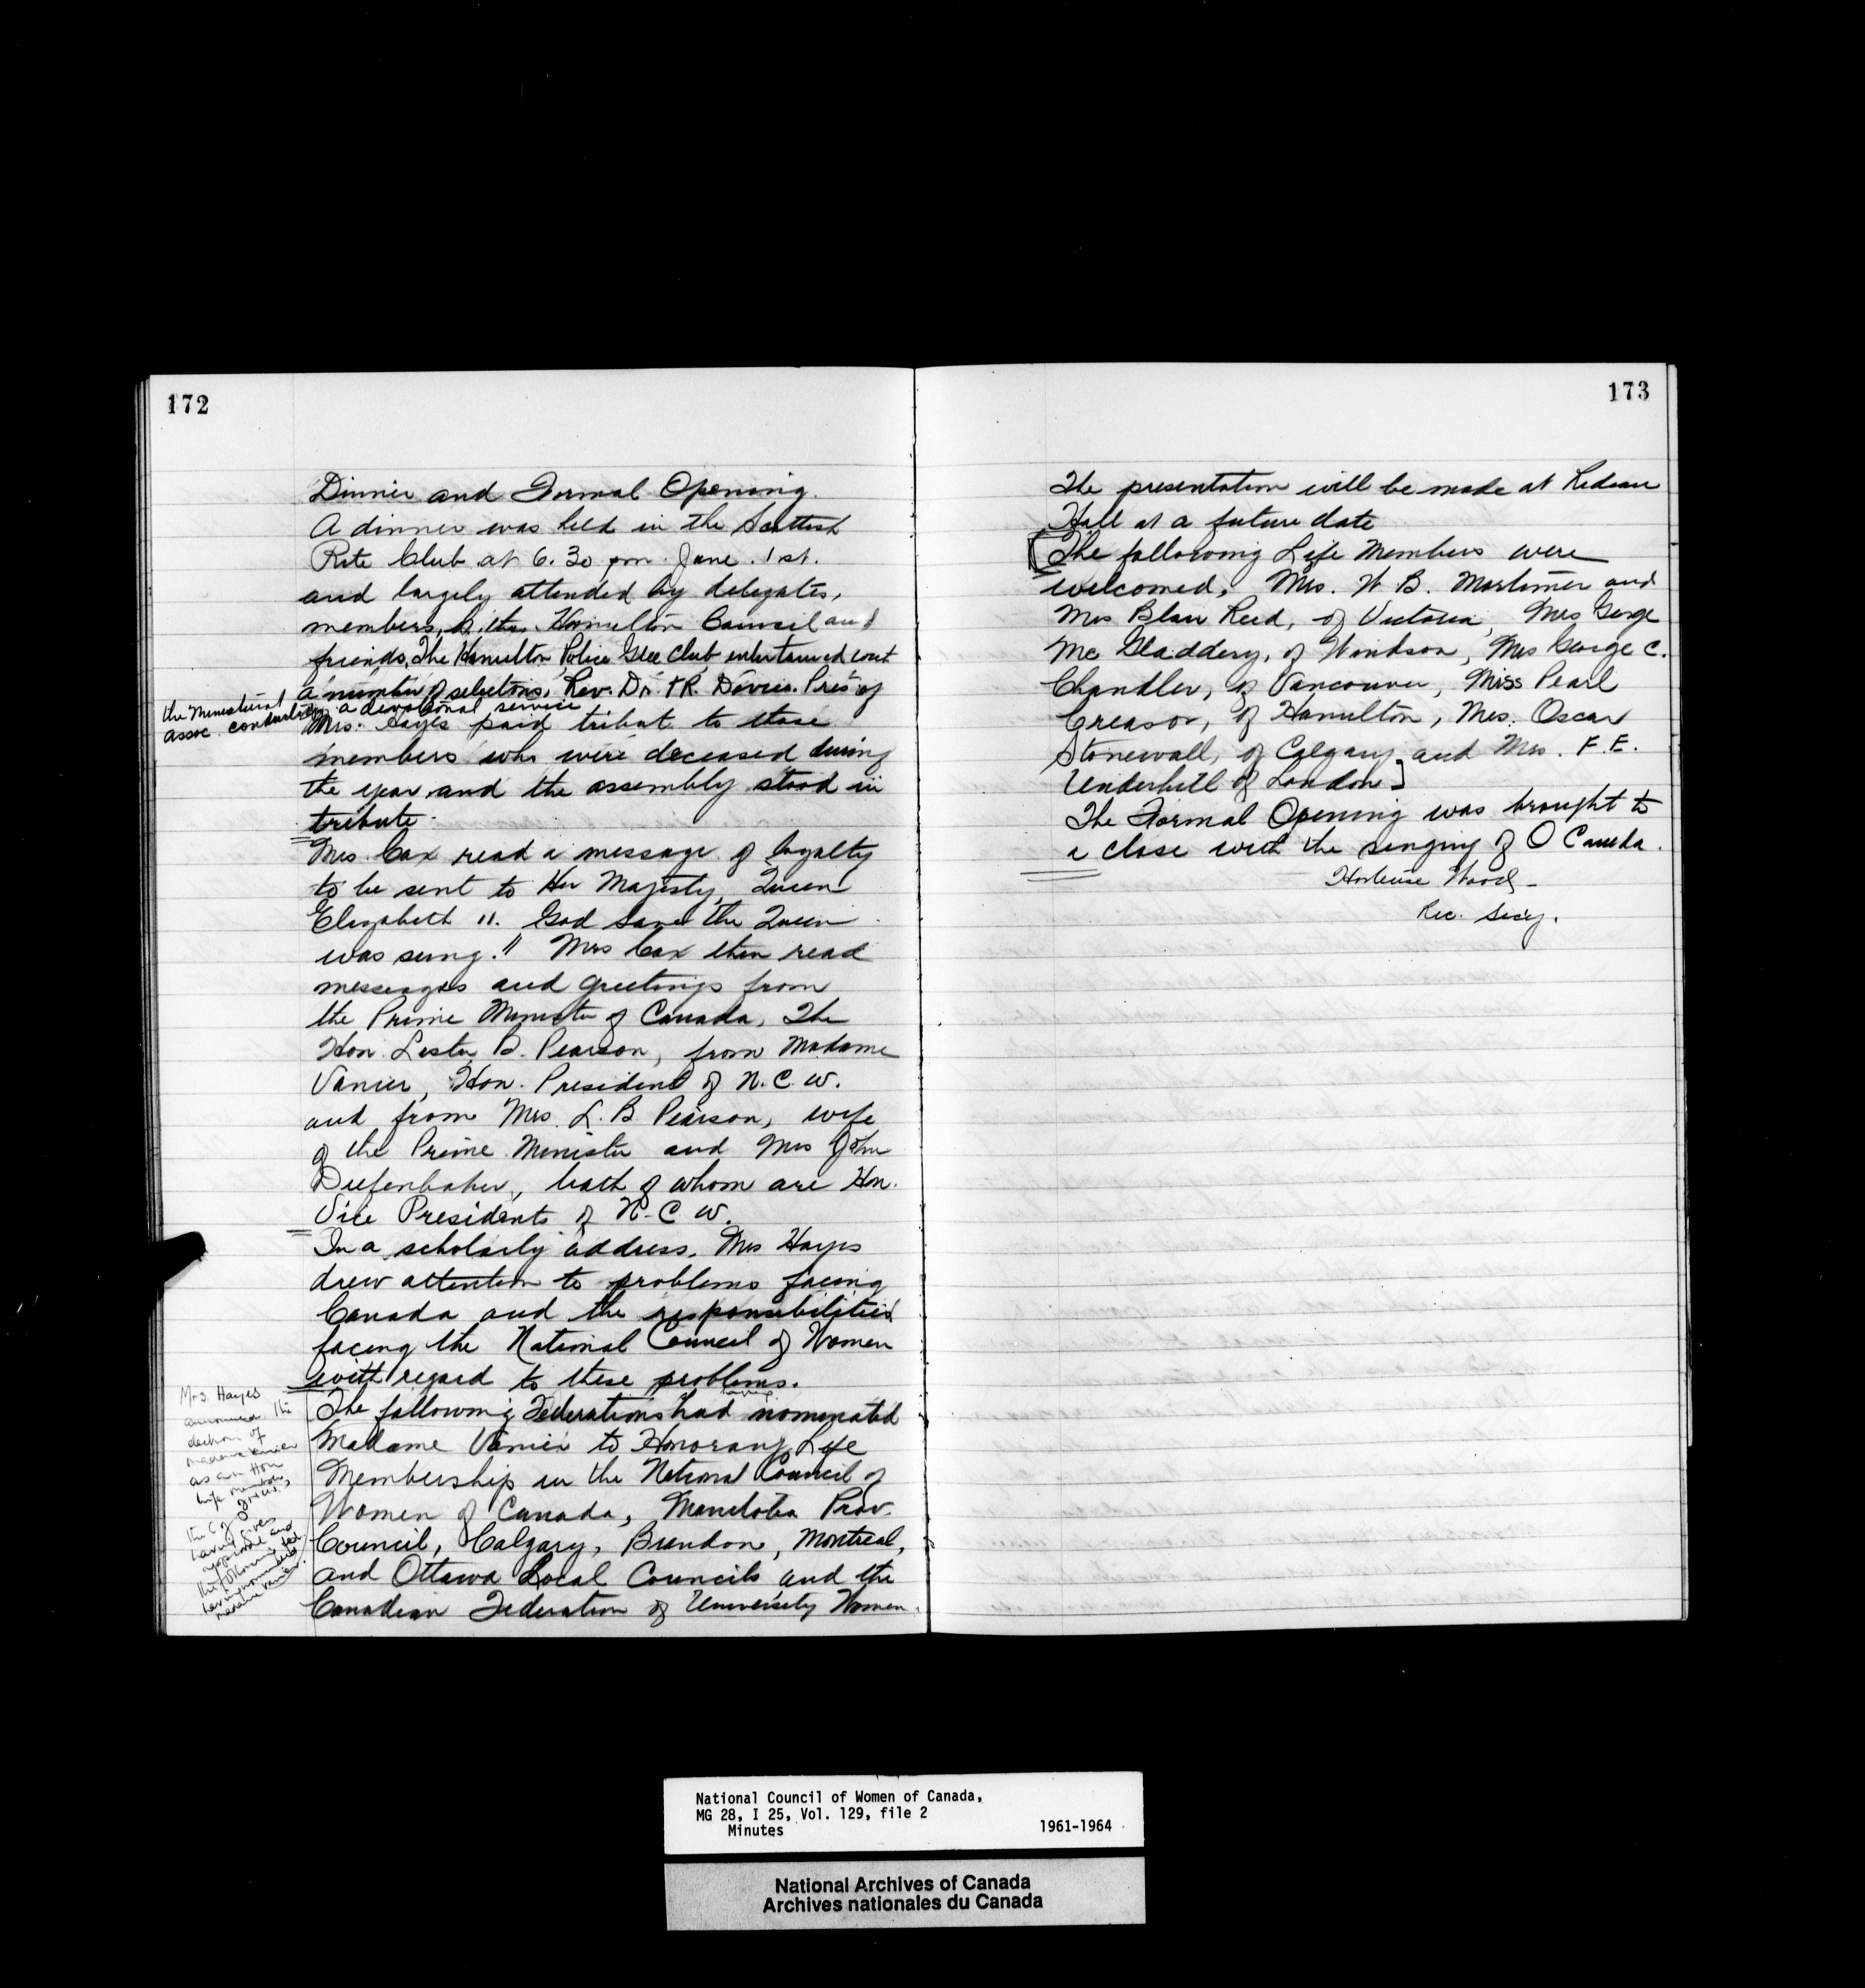 172
Dinner and Formal Opening.
A dinner was held in the Scottish
Rite Club at 6.30 pm. June. 1st.
and largely attended by delegates,
members, Hamilton Council and
friends, The Hamilton Police Glee Club entertained with
a number of selections. Rev. Dr. Davies. Pres of
the Ministerial
assoc. conducting a devotional service
Mrs. Hayes paid tribute to those
members who were deceased during
the year and the assembly stood in
tribute.
Mrs. Cox read a message of loyalty
to be sent to Her Majesty, Queen
Elizabeth 11. God Save the Queen
was sung." Mrs Cox then read
messages and greetings from
the Prime Minister of Canada, The
Hon. Lester B. Pearson, from Madame
Vanier, Hon. President of N.C.W.
and from Mrs. L. B Pearson, wife
of the Prime Minister and Mrs John
Diefenbaker, both of whom are Hon.
Vice Presidents of N-C W.
In a scholarly address, Mrs Hayes
drew attention to problems facing
Canada and the responsibilities
facing the National Council of Women
with regard to these problems.
Mrs. Hayes
announced the
election of
Madame Vanier
as an Hon
life member
having given
approval and
the following fed.
having nominated
Madame Vanier.
having
The following Federations had nominated
Madame Vanier to Honorary Life
Membership in the National Council of
Women of Canada, Manitoba Prov.
Council, Calgary, Brandon, Montreal,
and Ottawa Local Councils and the
Canadian Federation of University Women.
173
The presentation will be made at Rideau
Hall at a future date
[The following Life Members were
welcomed, Mrs. W B. Mortimer and
Mrs Blair Reed, of Victoria, Mrs George
Mc Gladdery, of Windsor, Mrs George C.
Chandler, of Vancouver, Miss Pearl
Creasor, of Hamilton, Mrs. Oscar
Stonewall, of Calgary and Mrs. F. E.
Underhill of London]
The Formal Opening was brought to
a close with the singing of O Canada.
Hortense Wood-
Rec. Sec'y.
National Council of Women of Canada,
MG 28, I 25, Vol. 129, file 2
Minutes 1961-1964
National Archives of Canada
Archives nationales du Canada